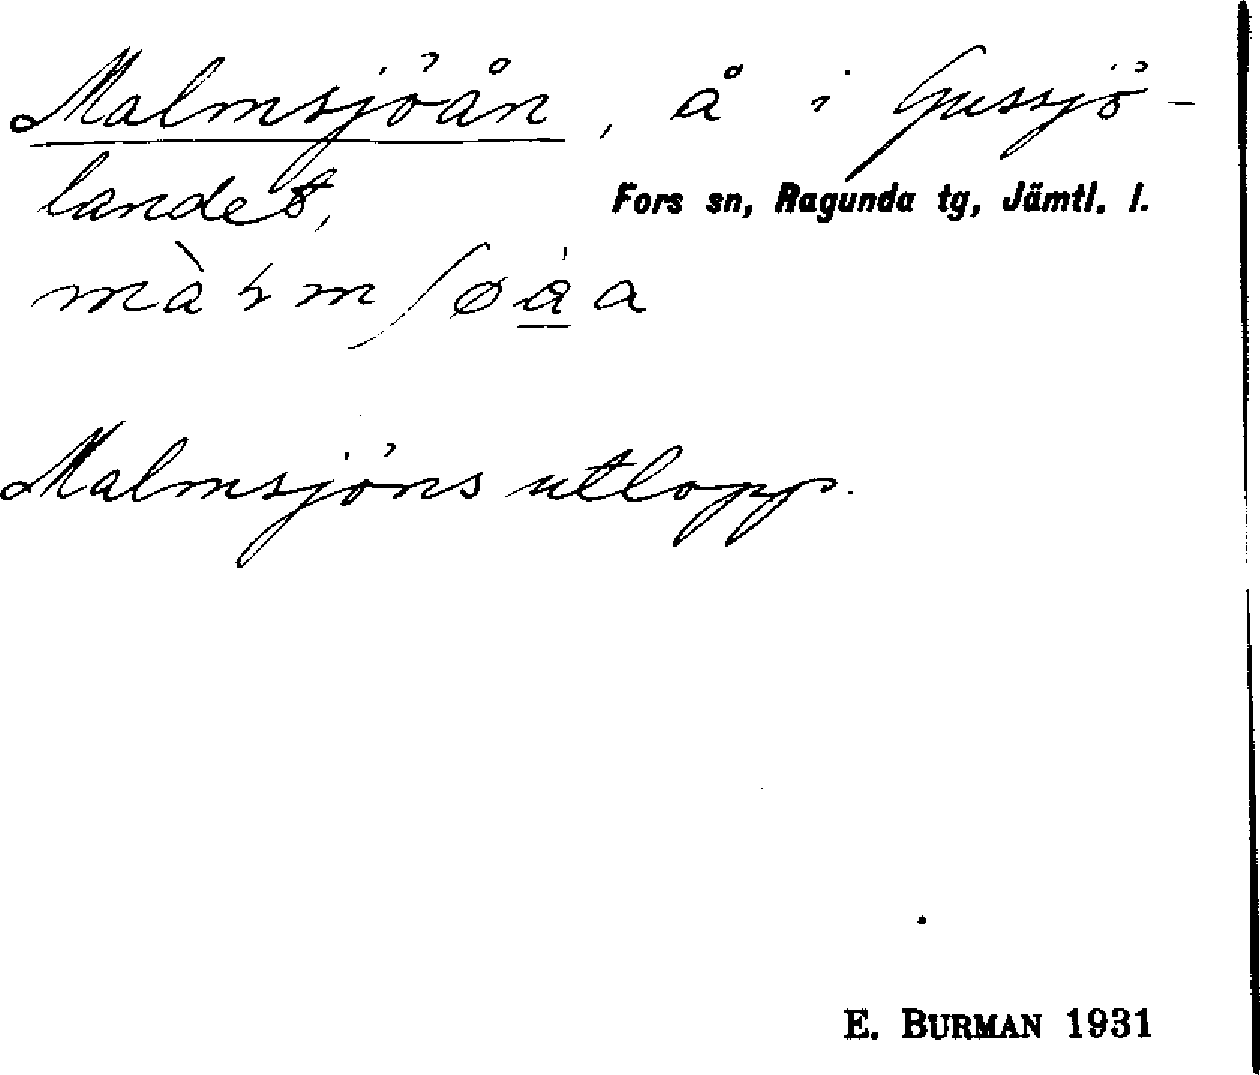 Malmsjöån, å i Gussjö-
landet, Fors sn, Ragunda tg, Jämtl. l.
Malmsjöns utlopp.
E. BURMAN 1931